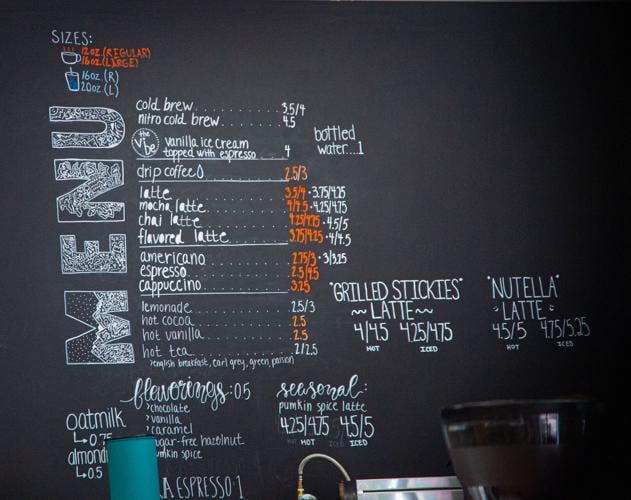 SIZES:
12oz.(REGULAR)
16oz.(LARGE)
16oz.(R)
20oz.(L)
MENU
cold brew 3.5/4
nitro cold brew 4.5
the Vibe vanilla ice cream
topped with espresso 4
bottled
water...1
drip coffee 2.5/3
latte 3.5/4 • 3.75/4.25
mocha latte 4/4.5 • 4.25/4.75
chai latte 4.25/4.75 • 4.5/5
flavored latte 3.75/4.25 • 4/4.5
americano 2.75/3 • 3/3.25
espresso 2.5/4.5
cappuccino 3.25
lemonade 2.5/3
hot cocoa 2.5
hot vanilla 2.5
hot tea 2/2.5
?english breakfast, earl grey, green, passion
"GRILLED STICKIES"
~~ LATTE ~~
4/4.5 4.25/4.75
HOT ICED
"NUTELLA"
LATTE
4.5/5 4.75/5.25
HOT ICED
flavorings: 0.5
?chocolate
?vanilla
?caramel
sugar-free hazelnut
pumkin spice
seasonal:
pumkin spice latte
4.25/4.75 4.5/5
HOT ICED
oatmilk
0.75
almond
0.5
ESPRESSO: 1